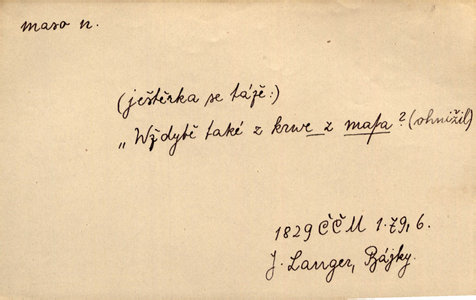 maso n.
(ještěrka se táže:)
„Wždytě také z krwe z masa? (ohnižil)
1829 ČČM 1.79, 6.
J. Langer, Bájky.